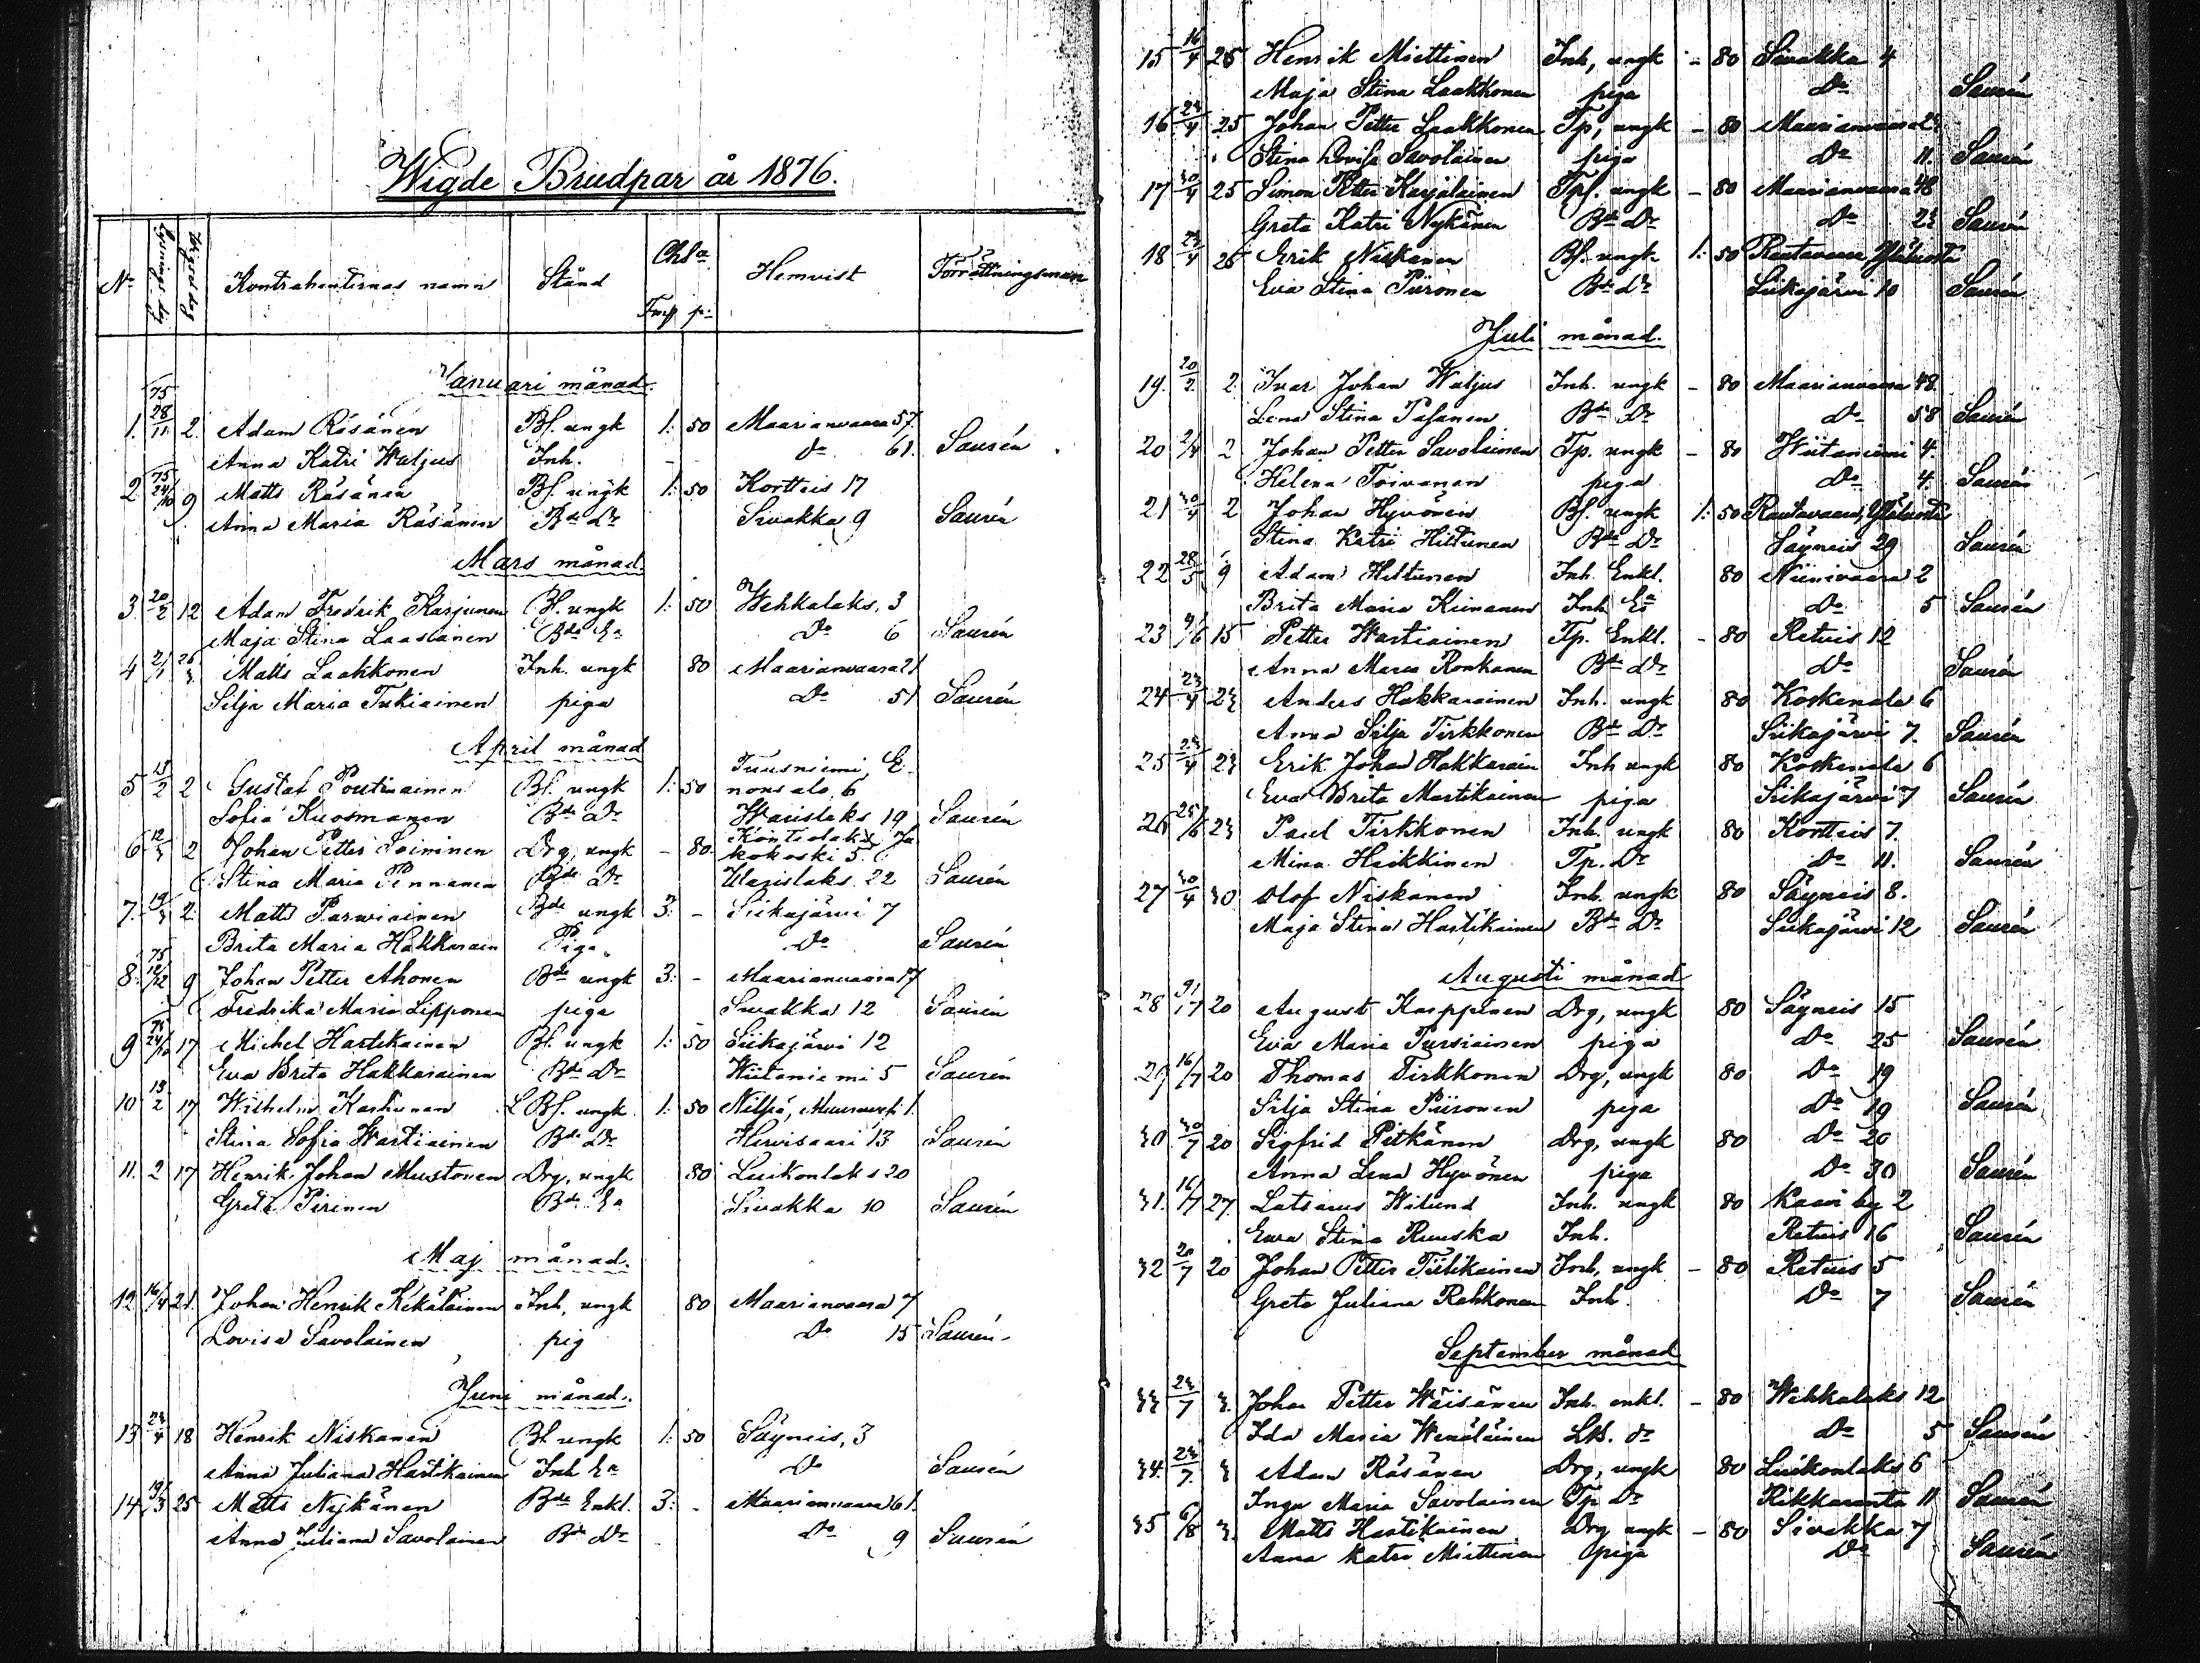 Wigde Brudpar år 1876.
No Lysnings dag Wigsel dag Kontrahenternas namn Stånd Chsa Fmk p: Hemvist Förrättningsman
Januari månad.
1. 75 28/11 2. Adam Räsänen Bf. ungk 1: 50 Maarianvaara 57.
Anna Katri Watjus Inh. do 61. Saurén
2 75 24/10 9 Matts Räsänen Bf. ungk 1: 50 Kortteis 17
Anna Maria Räsänen Bde Dr Sivakka 9 Saurén
Mars månad.
3 20/2 12 Adam Fredrik Karjunen Bf. ungk 1: 50 Wehkalaks, 3
Maja Stina Laastanen Bde Ea Do 6 Saurén
4 2/1 26/3 Matts Laakkonen Inh. ungk 80 Maarianvaara 21
Silja Maria Tukiainen piga Do 51 Saurén
April månad
5 13/2 2 Gustaf Poutiainen Bf. ungk 1: 50 Tuusniemi, E
nonsalo, 6
Sofia Kuosmanen Bde Dr Waristaks 19 Saurén
6 12/3 2 Johan Petter Soininen Drg, ungk - 80 Kontiolaks Ja
kokoski 5.
Stina Maria Pennanen Bde Dr Warislaks 22 Saurén
7. 19/3 2. Matts Parwiainen Bde ungk 3: - Siikajärvi 7
Brita Maria Hakkarain Piga Do Saurén
8. 75 12/12 9 Johan Petter Ahonen Bde ungk 3: - Maarianvaara 17
Fredrika Maria Lipponen piga Sivakka 12 Saurén
9 75 24/10 17 Michel Hartikainen Bf. ungk 1: 50 Siikajärvi 12
Eva Brita Hakkarainen Bde Dr Wiitaniemi 5 Saurén
10 13/2 17 Wilhelm Karhunen L Bf. ungk 1: 50 Nilsiä, 1.
Stina Sofia Wartiainen Bde Dr Hirvisaari 13 Saurén
11. 2 17 Henrik Johan Mustonen Drg, ungk 80 Luikonlaks 20
Greta Pirinen Bde Ea Sivakka 10 Saurén
Maj månad.
12 16/4 21. Johan Henrik Kekäläinen Inh, ungk 80 Maarianvaara 7
Lovisa Savolainen pig Do 15 Saurén
Juni månad.
13 23/4 18 Henrik Niskanen Bf ungk 1: 50 Säyneis, 3
Anna Juliana Hartikainen Inh Ea Do Saurén
14 19/3 25 Matts Nykänen Bde Enkl. 3: - Maarianvaara 61.
Anna Juliana Savolainen Bde Dr Do 9 Saurén
15 16/4 25 Henrik Miettinen Inh, ungk - 80 Sivakka 4
Maja Stina Laakkonen piga Do Saurén
16 23/4 25 Johan Petter Laakkonen Tp, ungk - 80 Maarianvaara 23
Stina Lovisa Savolainen piga Do 11. Saurén
17 30/4 25 Simon Petter Karjalainen Tpf. ungk - 80 Maarianvaara 48
Greta Katri Nykänen Bde Dr Do 23 Saurén
18 23/4 25 Erik Niskanen Bf. ungk 1: 50 Rautavaara,
Eva Stina Piironen Bde Dr Siikajärvi 10 Saurén
Juli månad.
19. 20/2 2. Ivar Johan Watjus Inh. ungk - 80 Maarianvaara 48.
Lena Stina Pasanen Bde Dr Do 58 Saurén
20 2/4 2 Johan Petter Savolainen Tp. ungk - 80 Wiitaniemi 4.
Helena Toivanen piga Do 4. Saurén
21 30/4 2 Johan Hyvönen Bf. ungk 1: 50 Rautavaara,
Stina Katri Hiltunen Bde Dr Säyneis 29 Saurén
22 28/5 9 Adam Hiltunen Inh. Enkl. 80 Niinivaara 2
Brita Maria Kiimanen Inh Ea Do 5 Saurén
23 9/6 15 Petter Wartiainen Tp. Enkl. - 80 Retuis 12
Anna Maria Ronkanen Bde Dr Do Saurén
24 23/4 23 Anders Hakkarainen Inh. ungk 80 Koskenala 6
Anna Silja Tirkkonen Bde Dr Siikajärvi 7. Saurén
25 23/4 23 Erik Johan Hakkarain Inh ungk 80 Koskenala 6
Eva Brita Martikainen piga Siikajärvi 7 Saurén
26 25/6 23 Paul Tirkkonen Inh. ungk 80 Kortteis 7.
Mina Heikkinen Tp. Dr Do 11. Saurén
27 30/4 30 Olof Niskanen Inh. ungk 80 Säyneis 8.
Maja Stina Hartikainen Bde Dr Siikajärvi 12 Saurén
Augusti månad
28 9/7 20 August Karppinen Drg, ungk 80 Säyneis 15
Eva Maria Tursiainen piga Do 25 Saurén
29 16/7 20 Thomas Tirkkonen Drg, ungk 80 Do 19
Silja Stina Piironen piga Do 19 Saurén
30 30/7 20 Sigfrid Pitkänen Drg, ungk 80 Do 20
Anna Lena Hyvönen piga Do 30 Saurén
31. 16/7 27. Latsarus Wilund Inh. ungk 80 Kaavi by 2
Eva Stina Ruuska Inh. Retuis 16 Saurén
32 20/7 20 Johan Petter Tiilikainen Inh, ungk - 80 Retuis 5
Greta Juliana Rahkonen Inh. Do 7 Saurén
September månad
33 23/7 3. Johan Petter Wäisänen Inh. enkl. - 80 Wehkalaks 12
Ida Maria Wenäläinen LB. dr Do 5 Saurén
34. 23/7. 3 Adam Räsänen Drg, ungk 80 Luikonlaks 6
Inga Maria Savolainen Tp Dr Rikkaranta 11 Saurén
35 6/8 3. Matts Hartikainen Drg ungk - 80 Sivakka 7
Anna Katri Miettinen piga Do Saurén